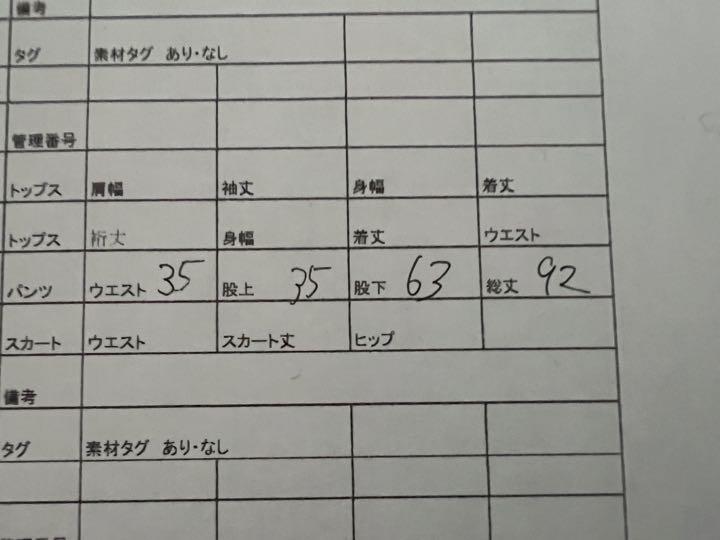 備考
タグ 素材タグ あり・なし
管理番号
トップス 肩幅 袖丈 身幅 着丈
トップス 裄丈 身幅 着丈 ウエスト
パンツ ウエスト 35 股上 35 股下 63 総丈 92
スカート ウエスト スカート丈 ヒップ
備考
タグ 素材タグ あり・なし
管理番号